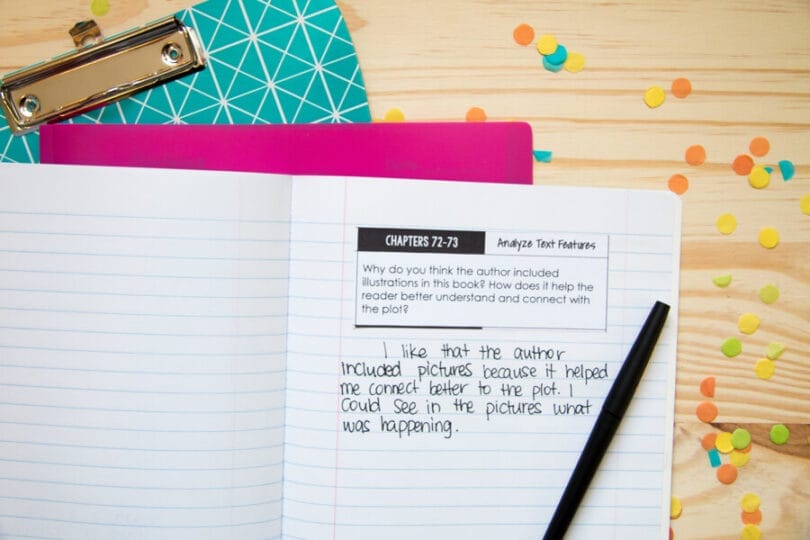 CHAPTERS 72-73 Analyze Text Features
Why do you think the author included
illustrations in this book? How does it help the
reader better understand and connect with
the plot?
I like that the author
included pictures because it helped
me connect better to the plot. I
could see in the pictures what
was happening.